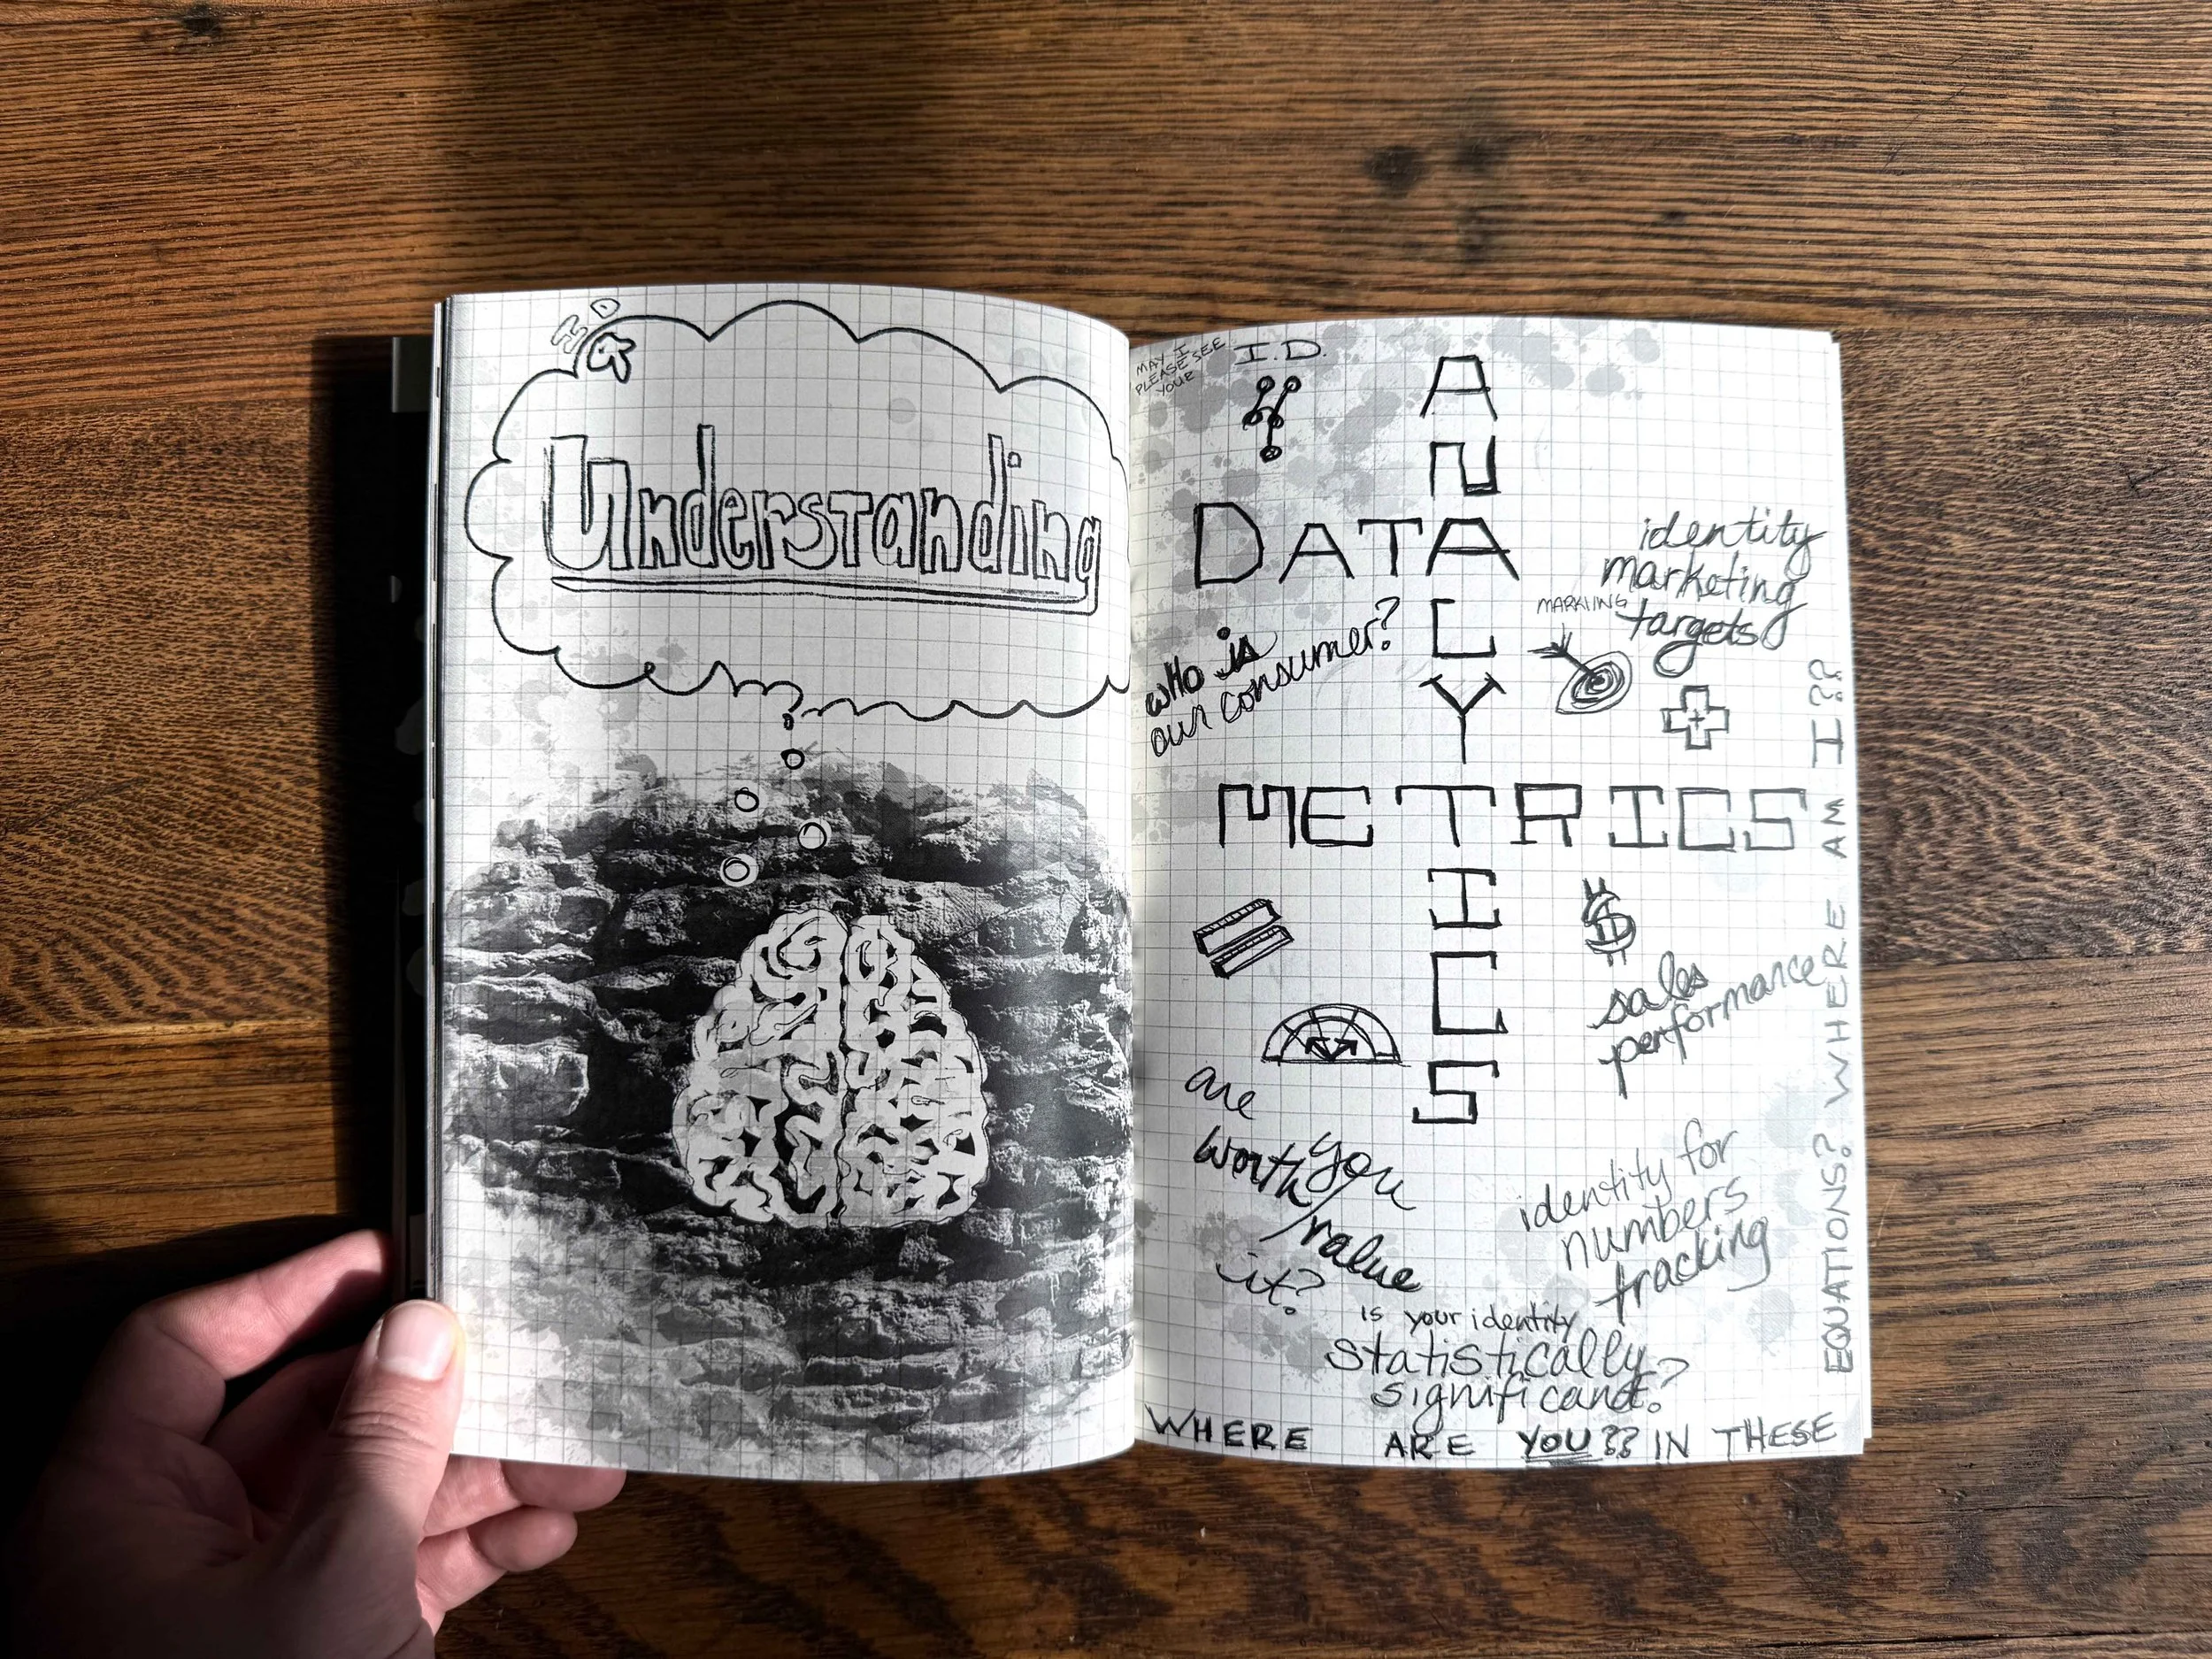 ID
Understanding
?
MAY I
PLEASE SEE
YOUR
I.D.
ANACYTICS
DATA
identity
marketing
targets
who is
our consumer?
METRICS
$
sales
performance
are
worth/you
value
it?
identity for
numbers
tracking
is your identity
statistically
significant?
WHERE ARE YOU?? IN THESE
EQUATIONS? WHERE AM I??